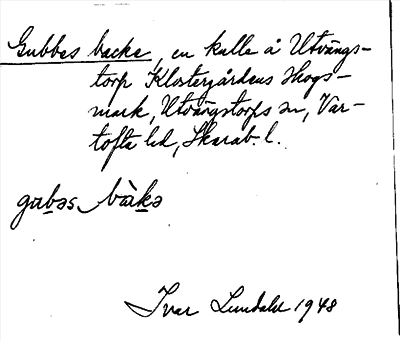 Gubbes backe, en kulle å Utvängs-
torp Klostergårdens skogs-
mark, Utvängstorps sn, Var-
tofta hd, Skarab. l.
gubəs bàkə
Ivar Lundahl 1948